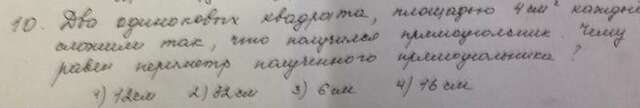 10. Два одинаковых квадрата, площадью 4 см² каждый
сложили так, что получился прямоугольник. Чему
равен периметр полученного прямоугольника?
1) 12см 2) 32 см 3) 6 см 4) 16 см